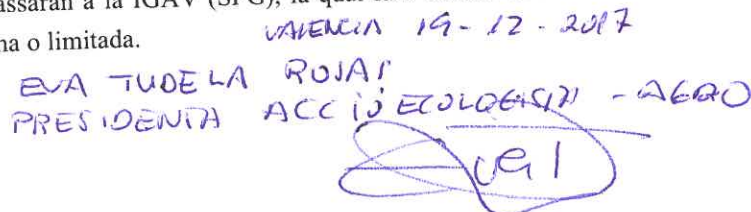 assaran a la IGAV (SPG), la qual
na o limitada.
VALENCIA 19-12-2017
EVA TUDELA ROJAS
PRESIDENTA ACCIÓ ECOLOGISTA - AGRO